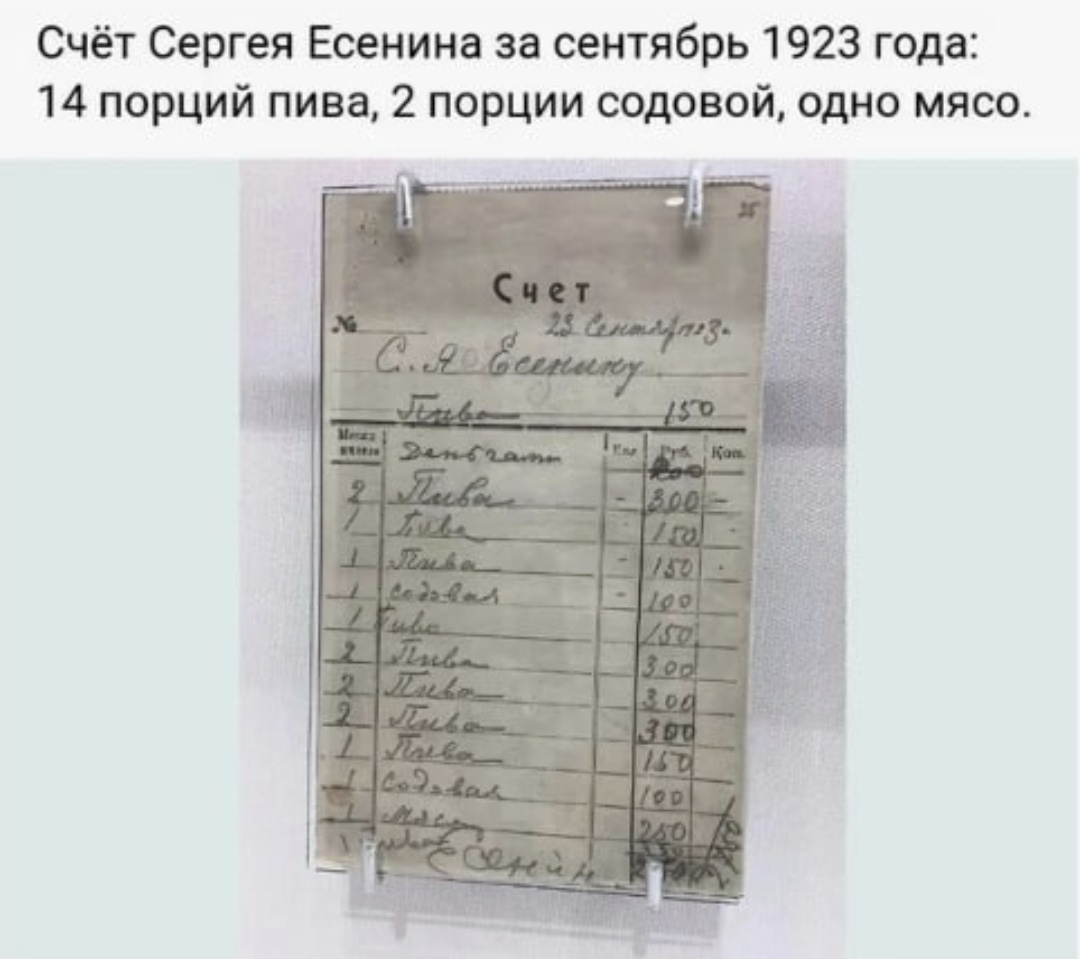 Счёт Сергея Есенина за сентябрь 1923 года:
14 порций пива, 2 порции содовой, одно мясо.
25
Счет
№ 23 Сентяр
С. А Есенину
Пиво 150
Деньгами Руб. Коп.
2 Пива - 300 -
1 Пива 150
1 Пива - 150
1 содовая - 100
1 Пиво 150
2 Пива 300
2 Пива 300
2 Пива 300
1 Пива 150
1 Содовая 100
1 Мясо 250
1 Есенин